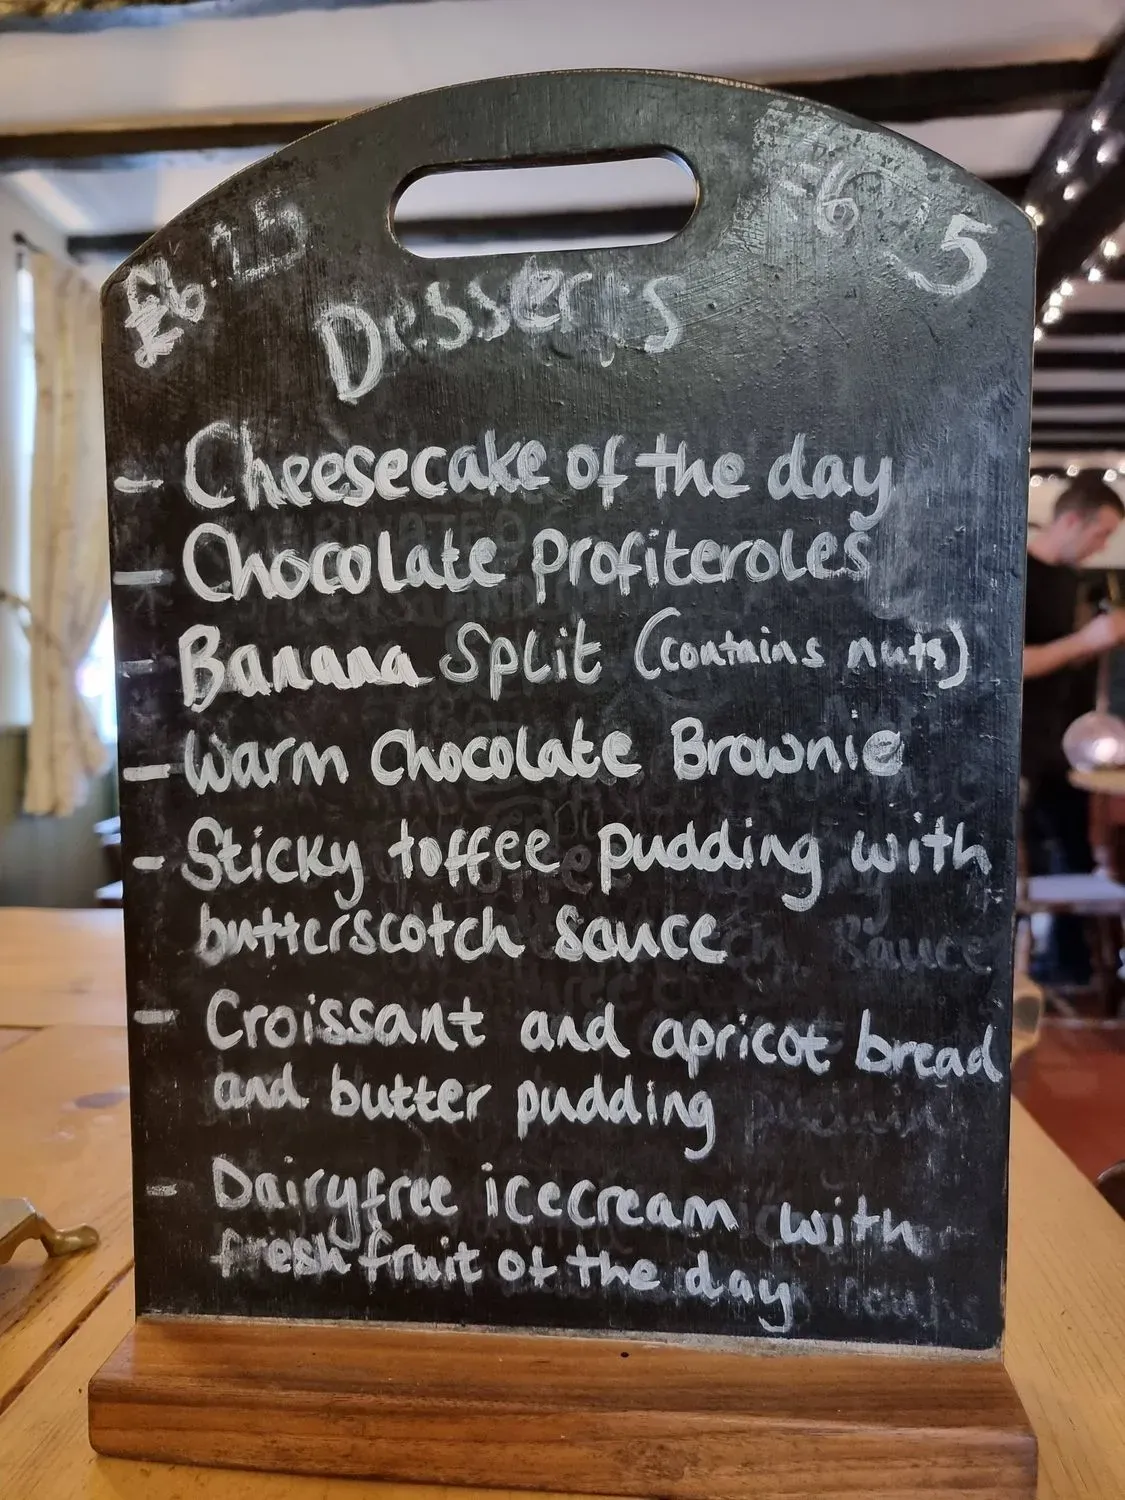 £6.25
Desserts
- Cheesecake of the day
- Chocolate profiteroles
- Banana Split (contains nuts)
- Warm Chocolate Brownie
- Sticky toffee pudding with
butterscotch sauce
- Croissant and apricot bread
and butter pudding
- Dairyfree icecream with
fresh fruit of the day